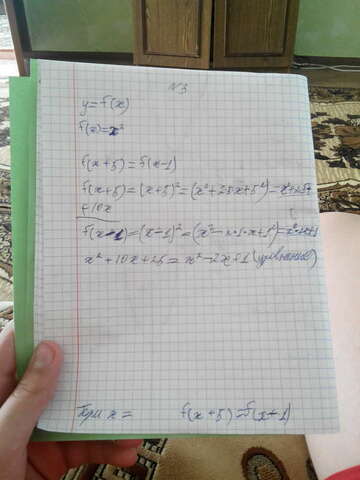 N 3
y=f(x)
f(x)=x²
f(x+5)=f(x-1)
f(x+5)=(x+5)²=(x²+2·5x+5²)=x²+25+
+10x
f(x-1)=(x-1)²=(x²-2·1·x+1²)=x²-2x+1
x²+10x+25=x²-2x+1 (уравнение)
При x= f(x+5)=f(x-1)